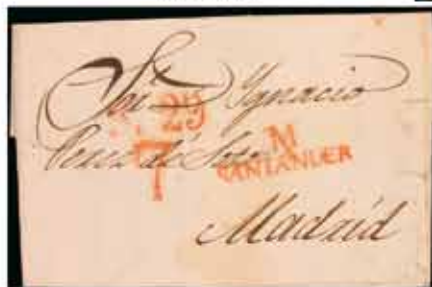 Sr. Ygnacio
29
Perez de Soto
7
M
SANTANDER
Madrid